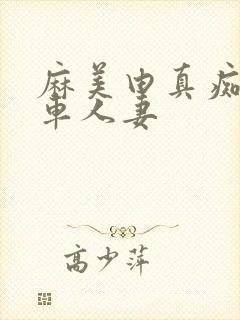 麻美由真痴
车人妻
高少萍